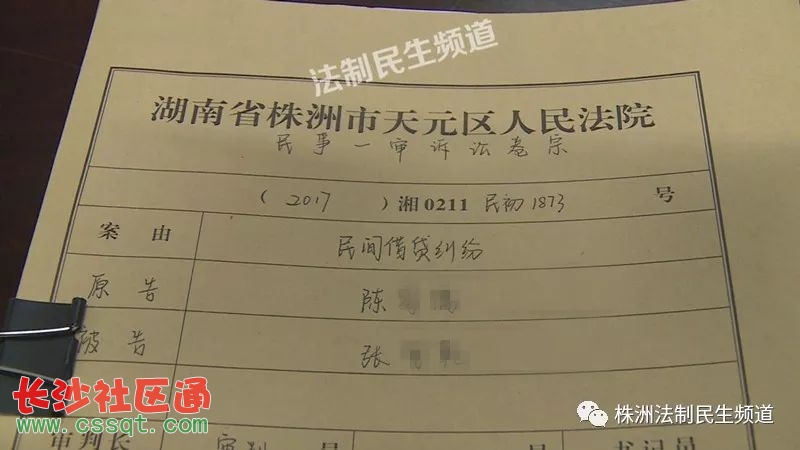 法制民生频道
湖南省株洲市天元区人民法院
民事一审诉讼卷宗
( 2017 ) 湘 0211 民初 1873 号
案由 民间借贷纠纷
原告 陈
被告 张
长沙社区通
www.cssqt.com
株洲法制民生频道
审判长 审判 员 书记员